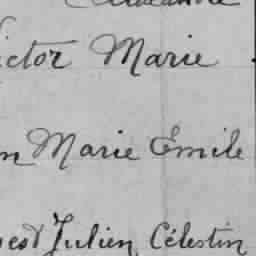 ictor Marie
n Marie Emile
est Julien Célestin